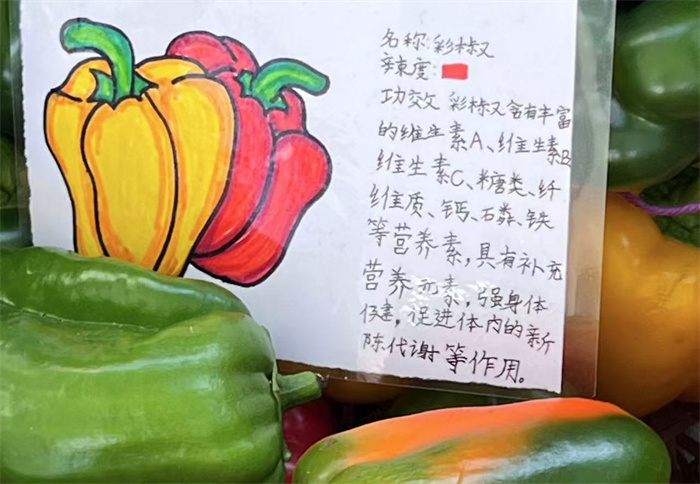 名称:彩椒
辣度:
功效 彩椒含有丰富
的维生素A、维生素B
维生素C、糖类、纤
维质、钙、磷、铁
等营养素,具有补充
营养元素,强身体
健,促进体内的新
陈代谢等作用。